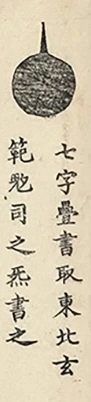 七字疊書取東北玄
範司之炁書之